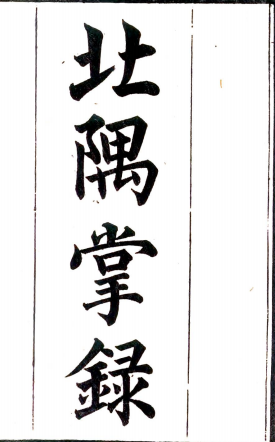 北隅掌録